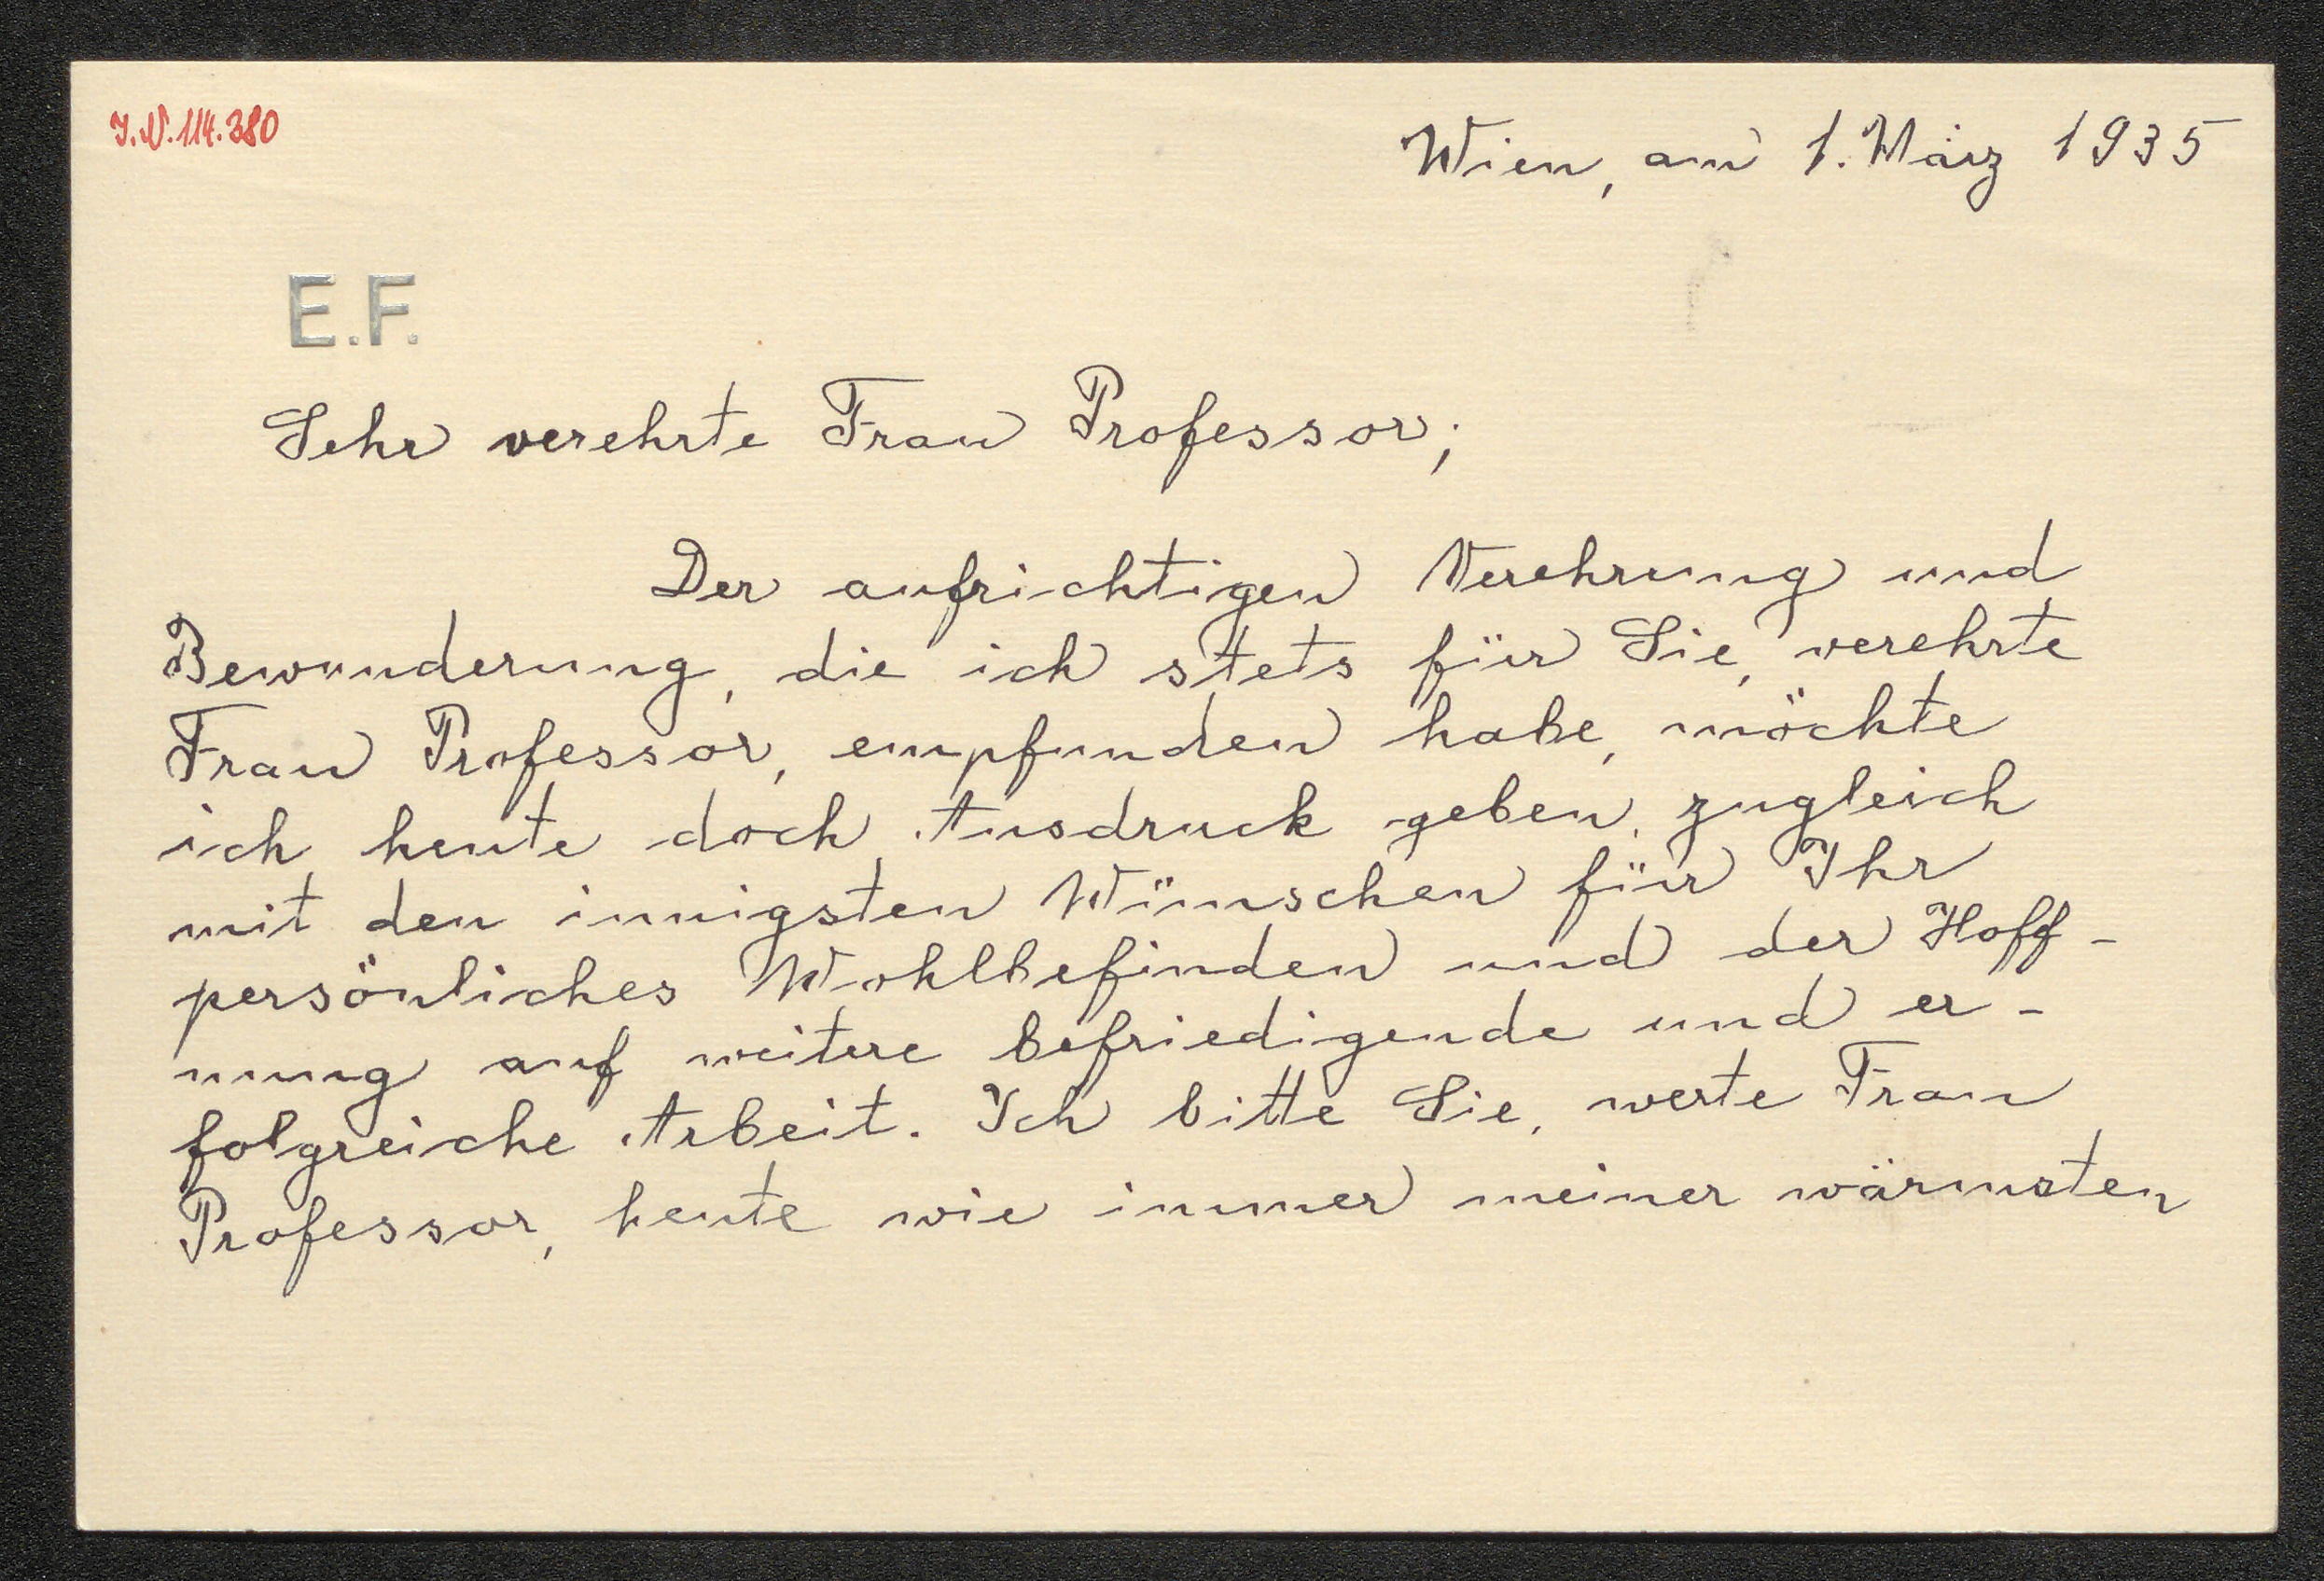 I.N. 114.380
Wien, am 1. März 1935
E.F.
Sehr verehrte Frau Professor;
Der aufrichtigen Verehrung und
Bewunderung, die ich stets für Sie, verehrte
Frau Professor, empfunden habe, möchte
ich heute doch Ausdruck geben, zugleich
mit den innigsten Wünschen für Ihr
persönliches Wohlbefinden und der Hoff-
nung auf weitere befriedigende und er-
folgreiche Arbeit. Ich bitte Sie, werte Frau
Professor, heute wie immer meiner wärmsten